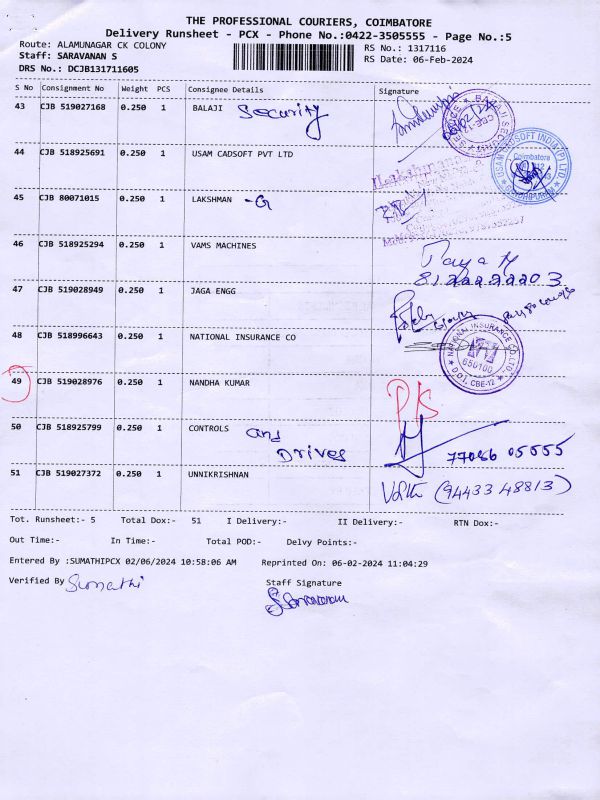 THE PROFESSIONAL COURIERS, COIMBATORE
Delivery Runsheet - PCX - Phone No.:0422-3505555 - Page No.:5
Route: ALAMUNAGAR CK COLONY RS No.: 1317116
Staff: SARAVANAN S RS Date: 06-Feb-2024
DRS No.: DCJB131711605
S No Consignment No Weight PCS Consignee Details Signature
43 CJB 519027168 0.250 1 BALAJI Security
44 CJB 518925691 0.250 1 USAM CADSOFT PVT LTD
USAM CADSOFT INDIA (P) LTD.
Coimbatore
45 CJB 80071015 0.250 1 LAKSHMAN -G
46 CJB 518925294 0.250 1 VAMS MACHINES
47 CJB 519028949 0.250 1 JAGA ENGG
48 CJB 518996643 0.250 1 NATIONAL INSURANCE CO
NATIONAL INSURANCE CO. LTD.
650100
D.O.I, CBE-12
49 CJB 519028976 0.250 1 NANDHA KUMAR
50 CJB 518925799 0.250 1 CONTROLS and Drives 77086 05555
51 CJB 519027372 0.250 1 UNNIKRISHNAN (94433 48813)
Tot. Runsheet:- 5 Total Dox:- 51 I Delivery:- II Delivery:- RTN Dox:-
Out Time:- In Time:- Total POD:- Delvy Points:-
Entered By :SUMATHIPCX 02/06/2024 10:58:06 AM Reprinted On: 06-02-2024 11:04:29
Verified By Sumathi Staff Signature
S. Saravanan